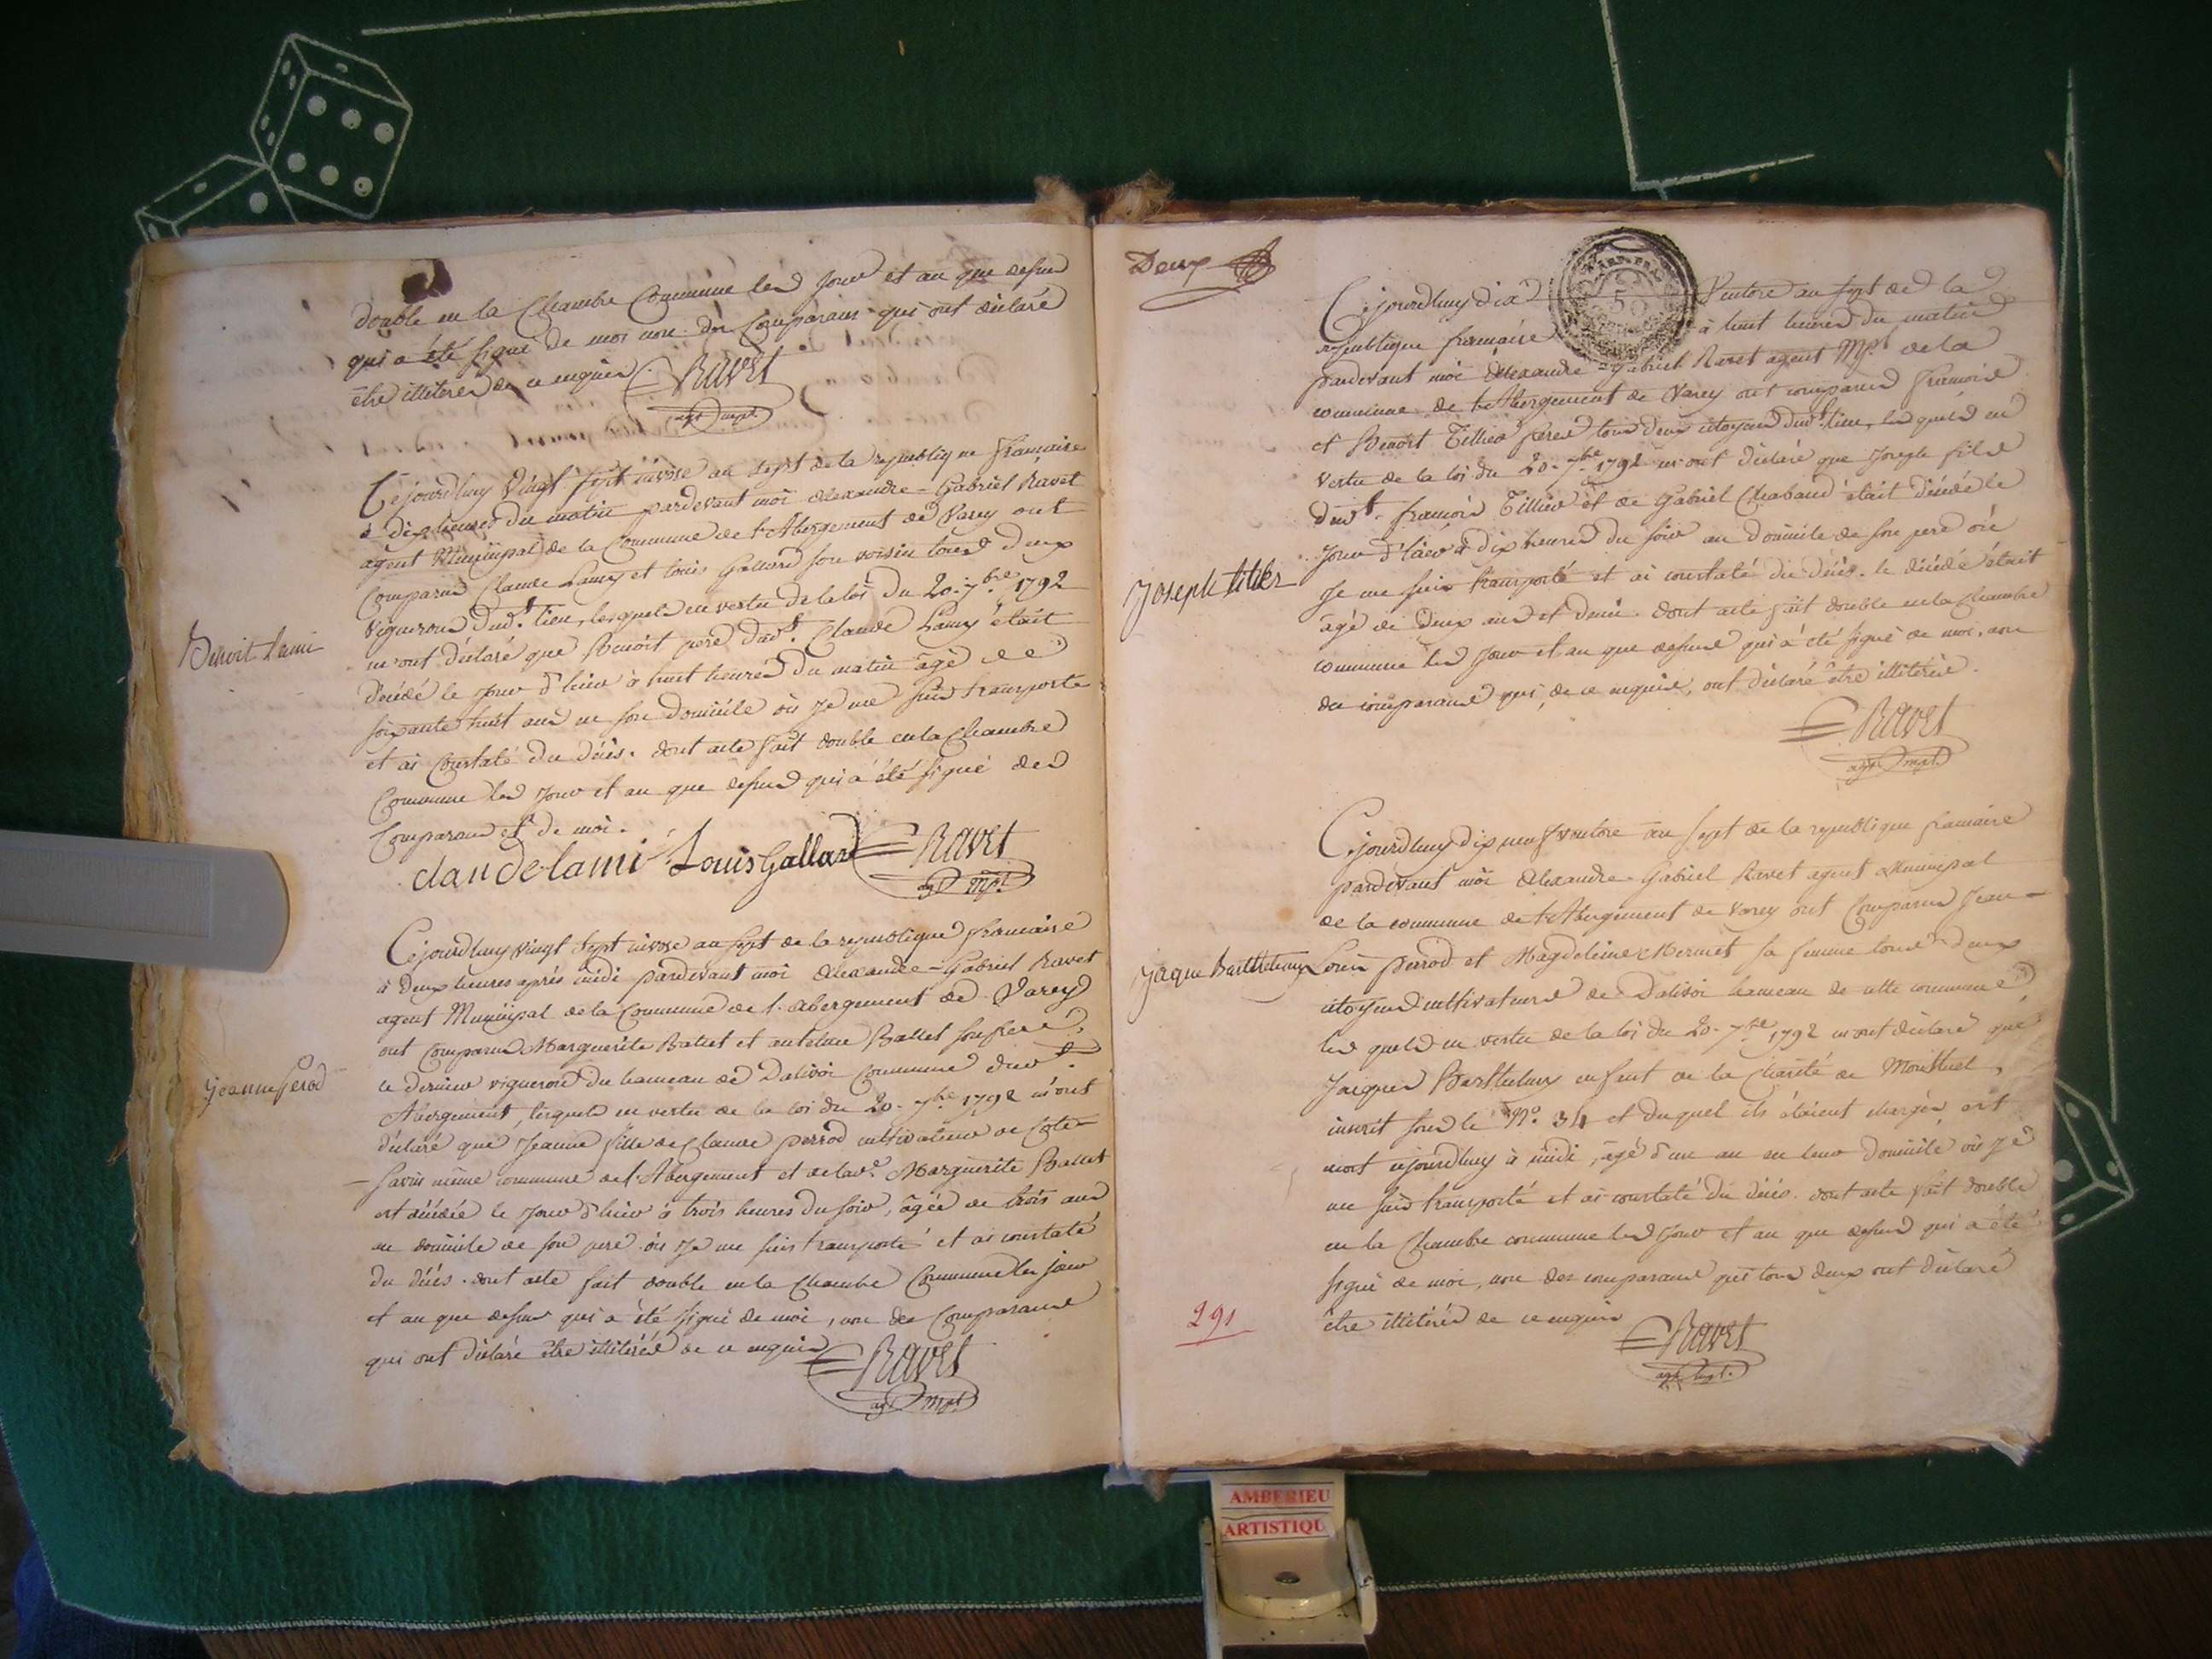 double en la Chambre Commune les Jour et an que dessus
qui a été signé de moi non des Comparans qui ont déclaré
être illiterés de ce enquis.
Ravet
agt mpl
Cejourdhuy Vingt sept nivose an sept de la republique francaise
à dix heures du matin pardevant moi Alexandre-Gabriel Ravet
agent Municipal de la Commune de l'Abergement de Varey ont
Comparus Claude Lamy et Louis Gallard son voisin tous deux
Vignerons dud.t lieu, lesquels en vertu de la loi du 20. 7.bre 1792
m'ont déclaré que Benoit pere dud.t Claude Lamy était
Benoit Lami
décédé le Jour d'hier à huit heures du matin âgé de
soixante huit ans en son domicile où je me suis transporté
et ai Constaté du décès. dont acte fait double en la Chambre
Commune les Jour et an que dessus qui a été signé des
Comparans et de moi.
claude lami Louis Gallard Ravet
agt mpl
Cejourdhuy vingt sept nivose an sept de la republique francaise
à deux heures après midi pardevant moi Alexandre-Gabriel Ravet
agent Municipal de la Commune de l'Abergement de Varey
ont Comparus Marguerite Ballet et antelme Ballet son frere,
ce dernier vigneron du hameau de Dalivoi Commune dud.t
Jeanne Perod
Abergement, lesquels en vertu de la loi du 20. 7.bre 1792 m'ont
déclaré que Jeanne fille de Claude perrod cultivateur de Cote-
-savin même commune de l'Abergement et de lad.e Marguerite Ballet
est décédée le Jour d'hier à trois heures du soir, âgée de trois ans
au domicile de son pere où je me suis transporté et ai constaté
du décès. dont acte fait double en la Chambre Commune les jour
et an que dessus qui a été signé de moi, non des Comparans
qui ont déclaré être illiterés de ce enquis
Ravet
agt mpl
Deux
Cejourdhuy dix Ventose an sept de la
republique francaise à huit heures du matin
pardevant moi Alexandre-Gabriel Ravet agent Mpl de la
commune de l'Abergement de Varey ont comparus francois
et Benoit Tillier freres tous deux citoyens dud.t lieu, lesquels en
vertu de la loi du 20. 7.bre 1792 m'ont déclaré que Joseph fils
dud.t francois Tillier et de Gabriel Chabaud était décédé le
Jour d'hier à dix heures du soir au domicile de son pere où
Joseph titiler
Je me suis transporté et ai constaté du décès. le décédé était
âgé de deux ans et demi. dont acte fait double en la Chambre
commune les Jour et an que dessus qui a été signé de moi, non
des comparans qui, de ce enquis, ont déclaré être illiterés.
Ravet
agt mpl.
Cejourdhuy dix neuf ventose an sept de la republique francaise
pardevant moi Alexandre-Gabriel Ravet agent Municipal
de la commune de l'Abergement de Varey ont Comparus Jean-
Jaque Barthelemy
Louis perrod et Magdeleine Mermet sa femme tous deux
citoyens cultivateurs de Dalivoi hameau de cette commune
les quels en vertu de la loi du 20. 7.bre 1792 m'ont déclaré que
Jacques Barthelemy enfant de la Charité de Montluel,
inscrit sous le N.o 34 et duquel ils étaient chargés, est
mort cejourdhuy à midi, âgé d'un an en leur domicile où Je
me suis transporté et ai constaté du décès. dont acte fait double
en la Chambre commune les Jour et an que dessus qui a été
signé de moi, non des comparans qui tous deux ont déclaré
être illiterés de ce enquis
291
Ravet
agt mpl.
AMBERIEU
ARTISTIQU